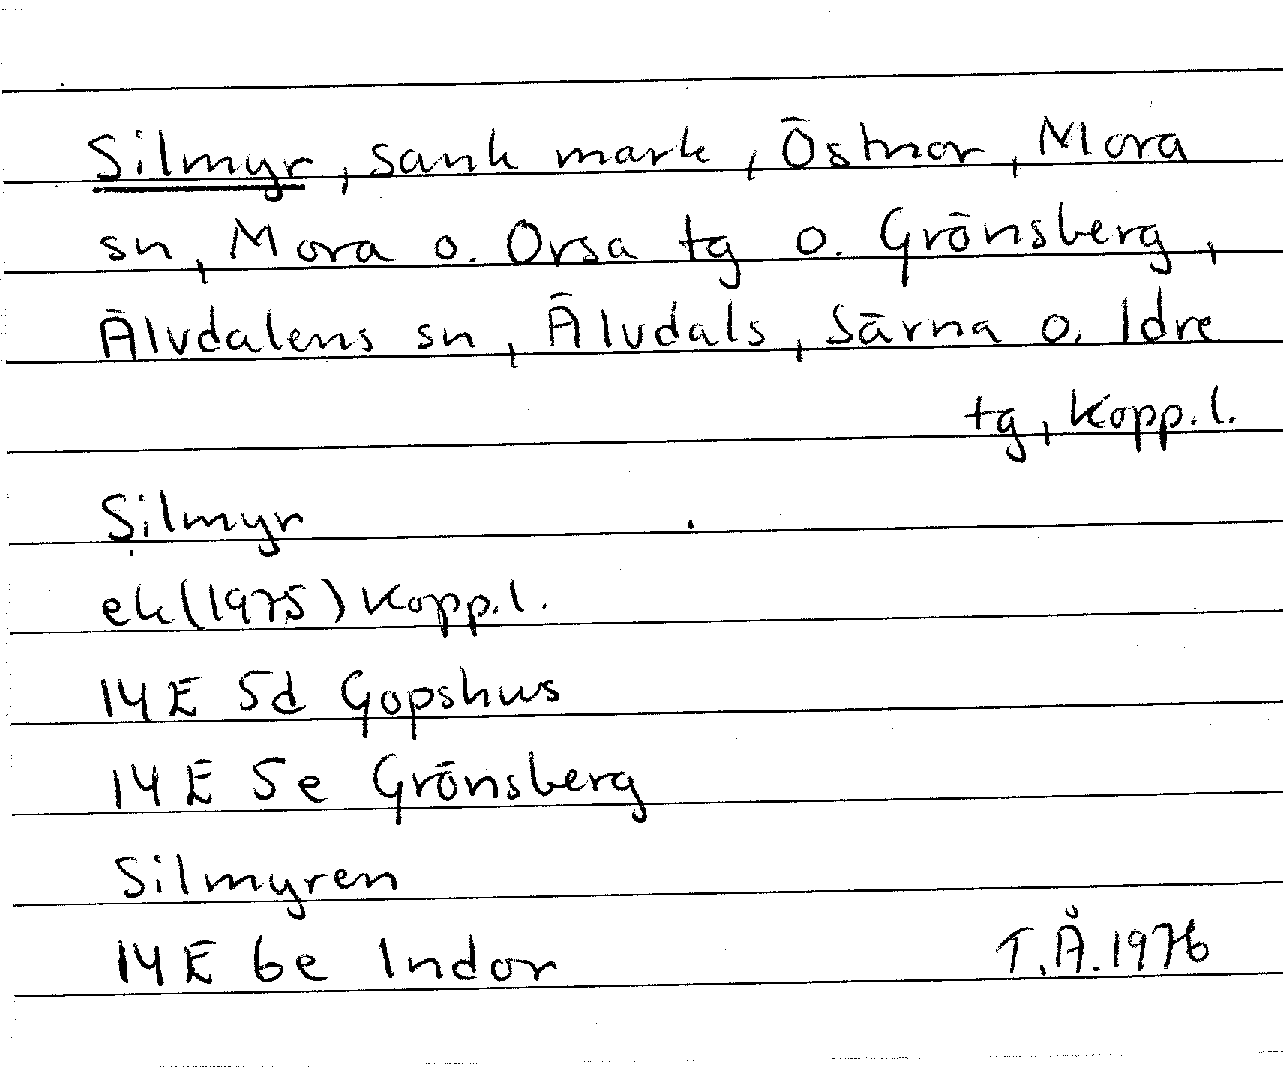 Silmyr, sank mark, Östnor, Mora
sn, Mora o. Orsa tg o. Grönsberg,
Älvdalens sn, Älvdals, Särna o. Idre
tg, Kopp.l.
Silmyr
ek (1975) Kopp.l.
14E 5d Gopshus
14E 5e Grönsberg
Silmyren
14E 6e Indor
T.Å.1976